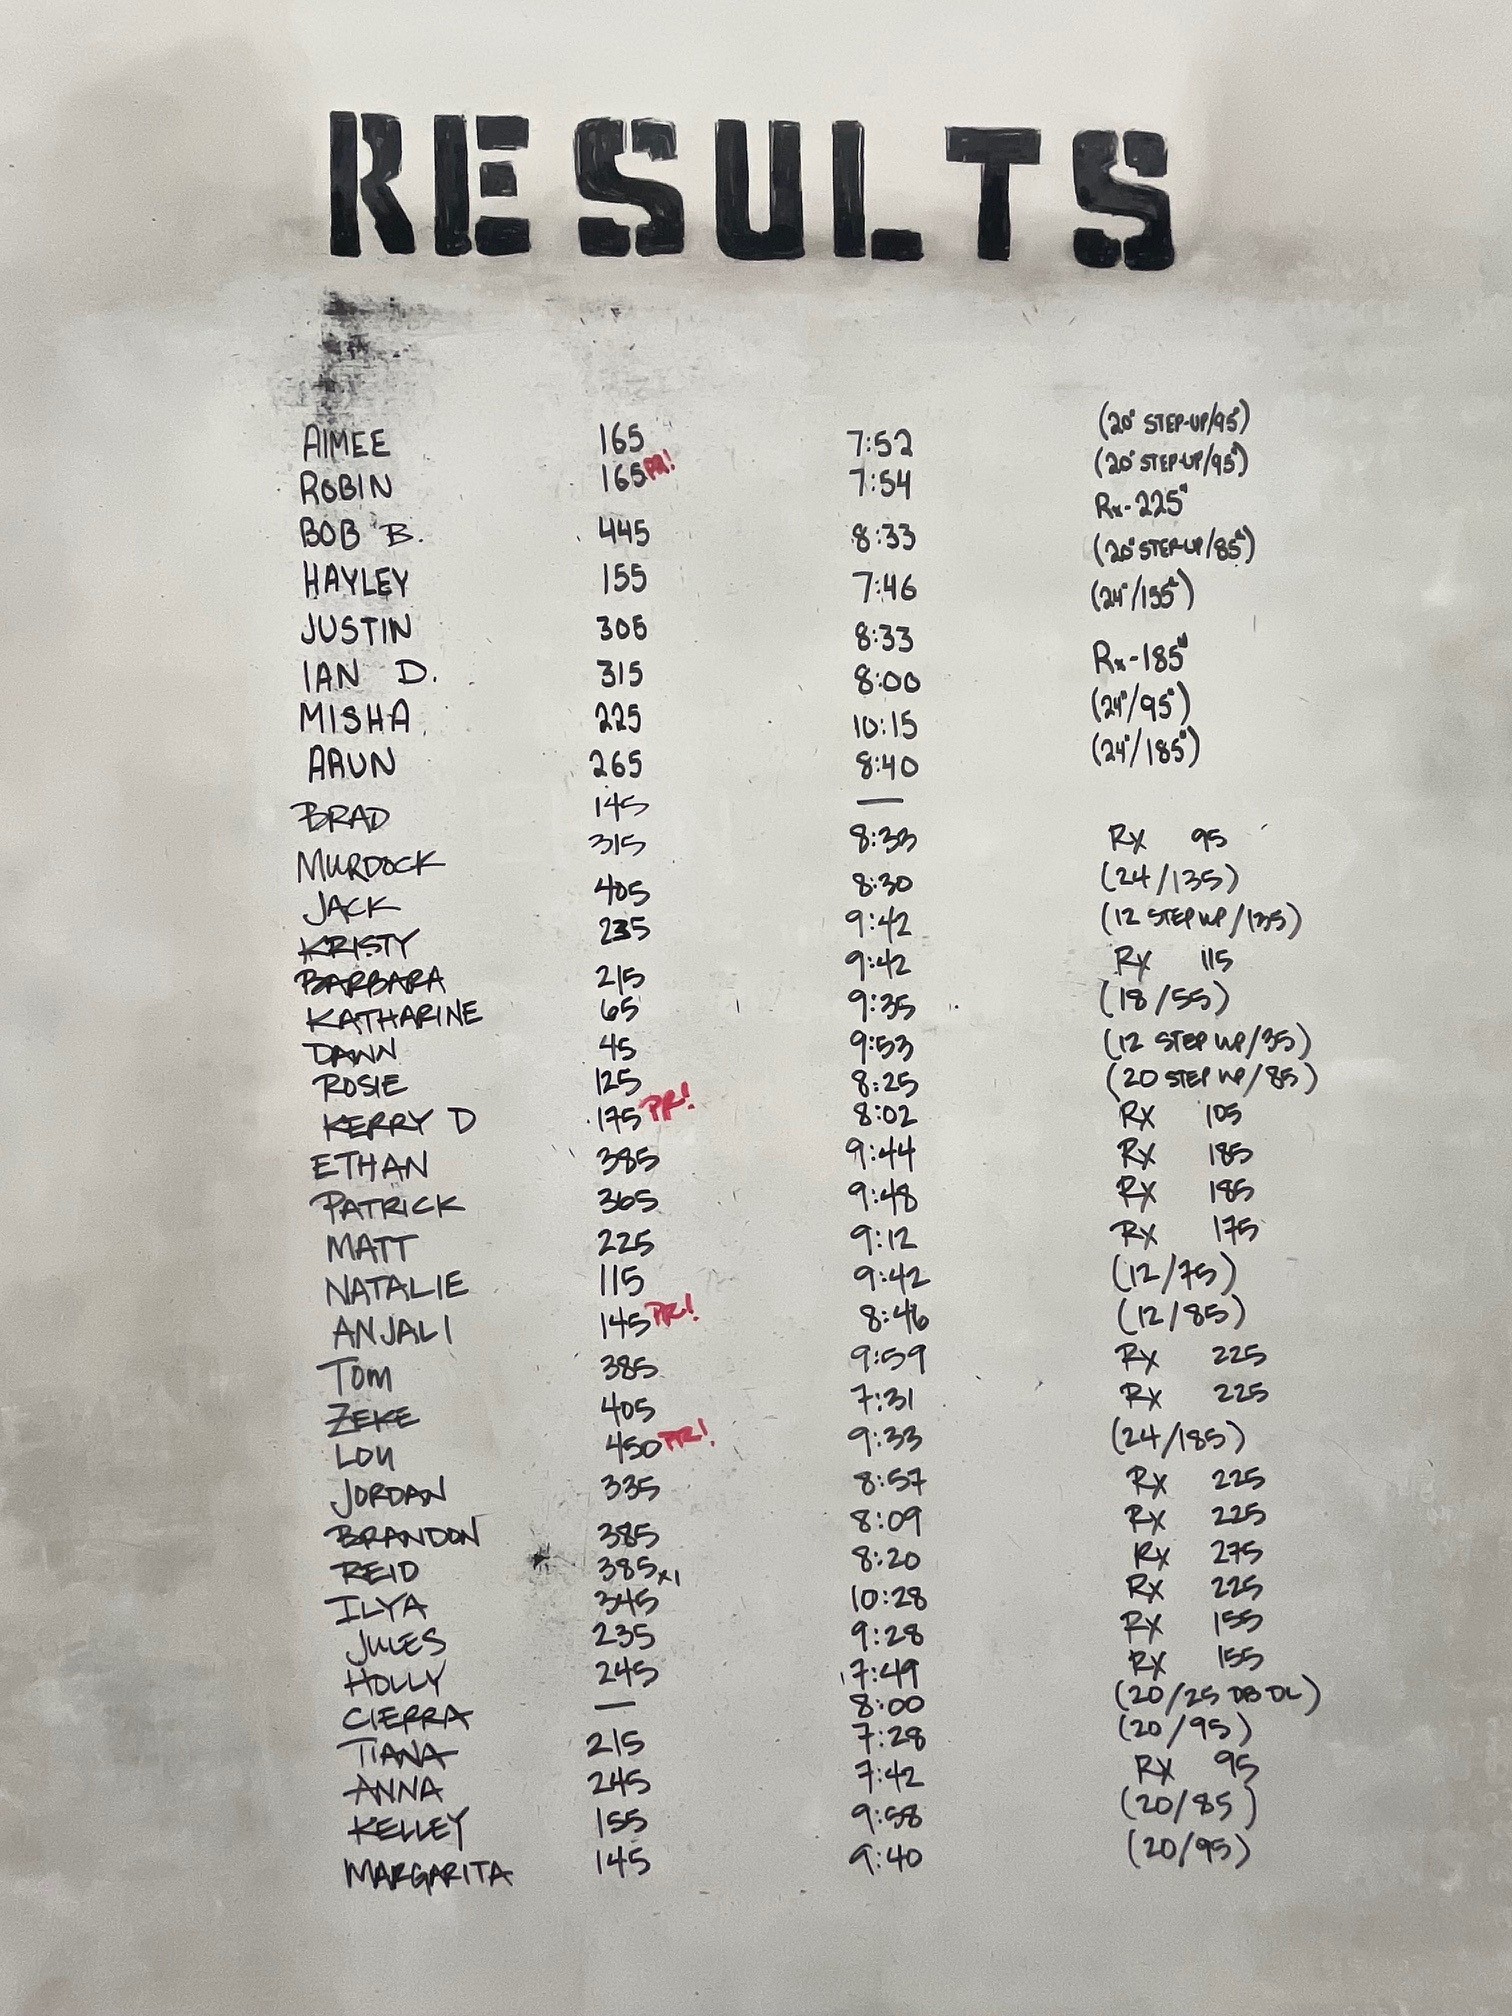 RESULTS
AIMEE 165 7:52 (20" STEP-UP/95#)
ROBIN 165 PR! 7:54 (20" STEP-UP/95#)
BOB B. 445 8:33 Rx-225#
HAYLEY 155 7:46 (20" STEP-UP/85#)
JUSTIN 305 8:33 (24"/155#)
IAN D. 315 8:00 Rx-185#
MISHA 225 10:15 (24"/95#)
ARUN 265 8:40 (24"/185#)
BRAD 145 —
MURDOCK 315 8:33 RX 95
JACK 405 8:30 (24/135)
KRISTY 235 9:42 (12 STEP UP/135)
BARBARA 215 9:42 RX 115
KATHARINE 65 9:35 (18/55)
DAWN 45 9:53 (12 STEP UP/35)
ROSIE 125 8:25 (20 STEP UP/85)
KERRY D 175 PR! 8:02 RX 105
ETHAN 385 9:44 RX 185
PATRICK 365 9:48 RX 185
MATT 225 9:12 RX 175
NATALIE 115 9:42 (12/75)
ANJALI 145 PR! 8:46 (12/85)
TOM 385 9:59 RX 225
ZEKE 405 7:31 RX 225
LOU 450 PR! 9:33 (24/185)
JORDAN 335 8:57 RX 225
BRANDON 385 8:09 RX 225
REID 385x1 8:20 RX 275
ILYA 345 10:28 RX 225
JULES 235 9:28 RX 155
HOLLY 245 7:49 RX 155
CIERRA — 8:00 (20/25 DB DL)
TIANA 215 7:28 (20/95)
ANNA 245 7:42 RX 95
KELLEY 155 9:58 (20/85)
MARGARITA 145 9:40 (20/95)